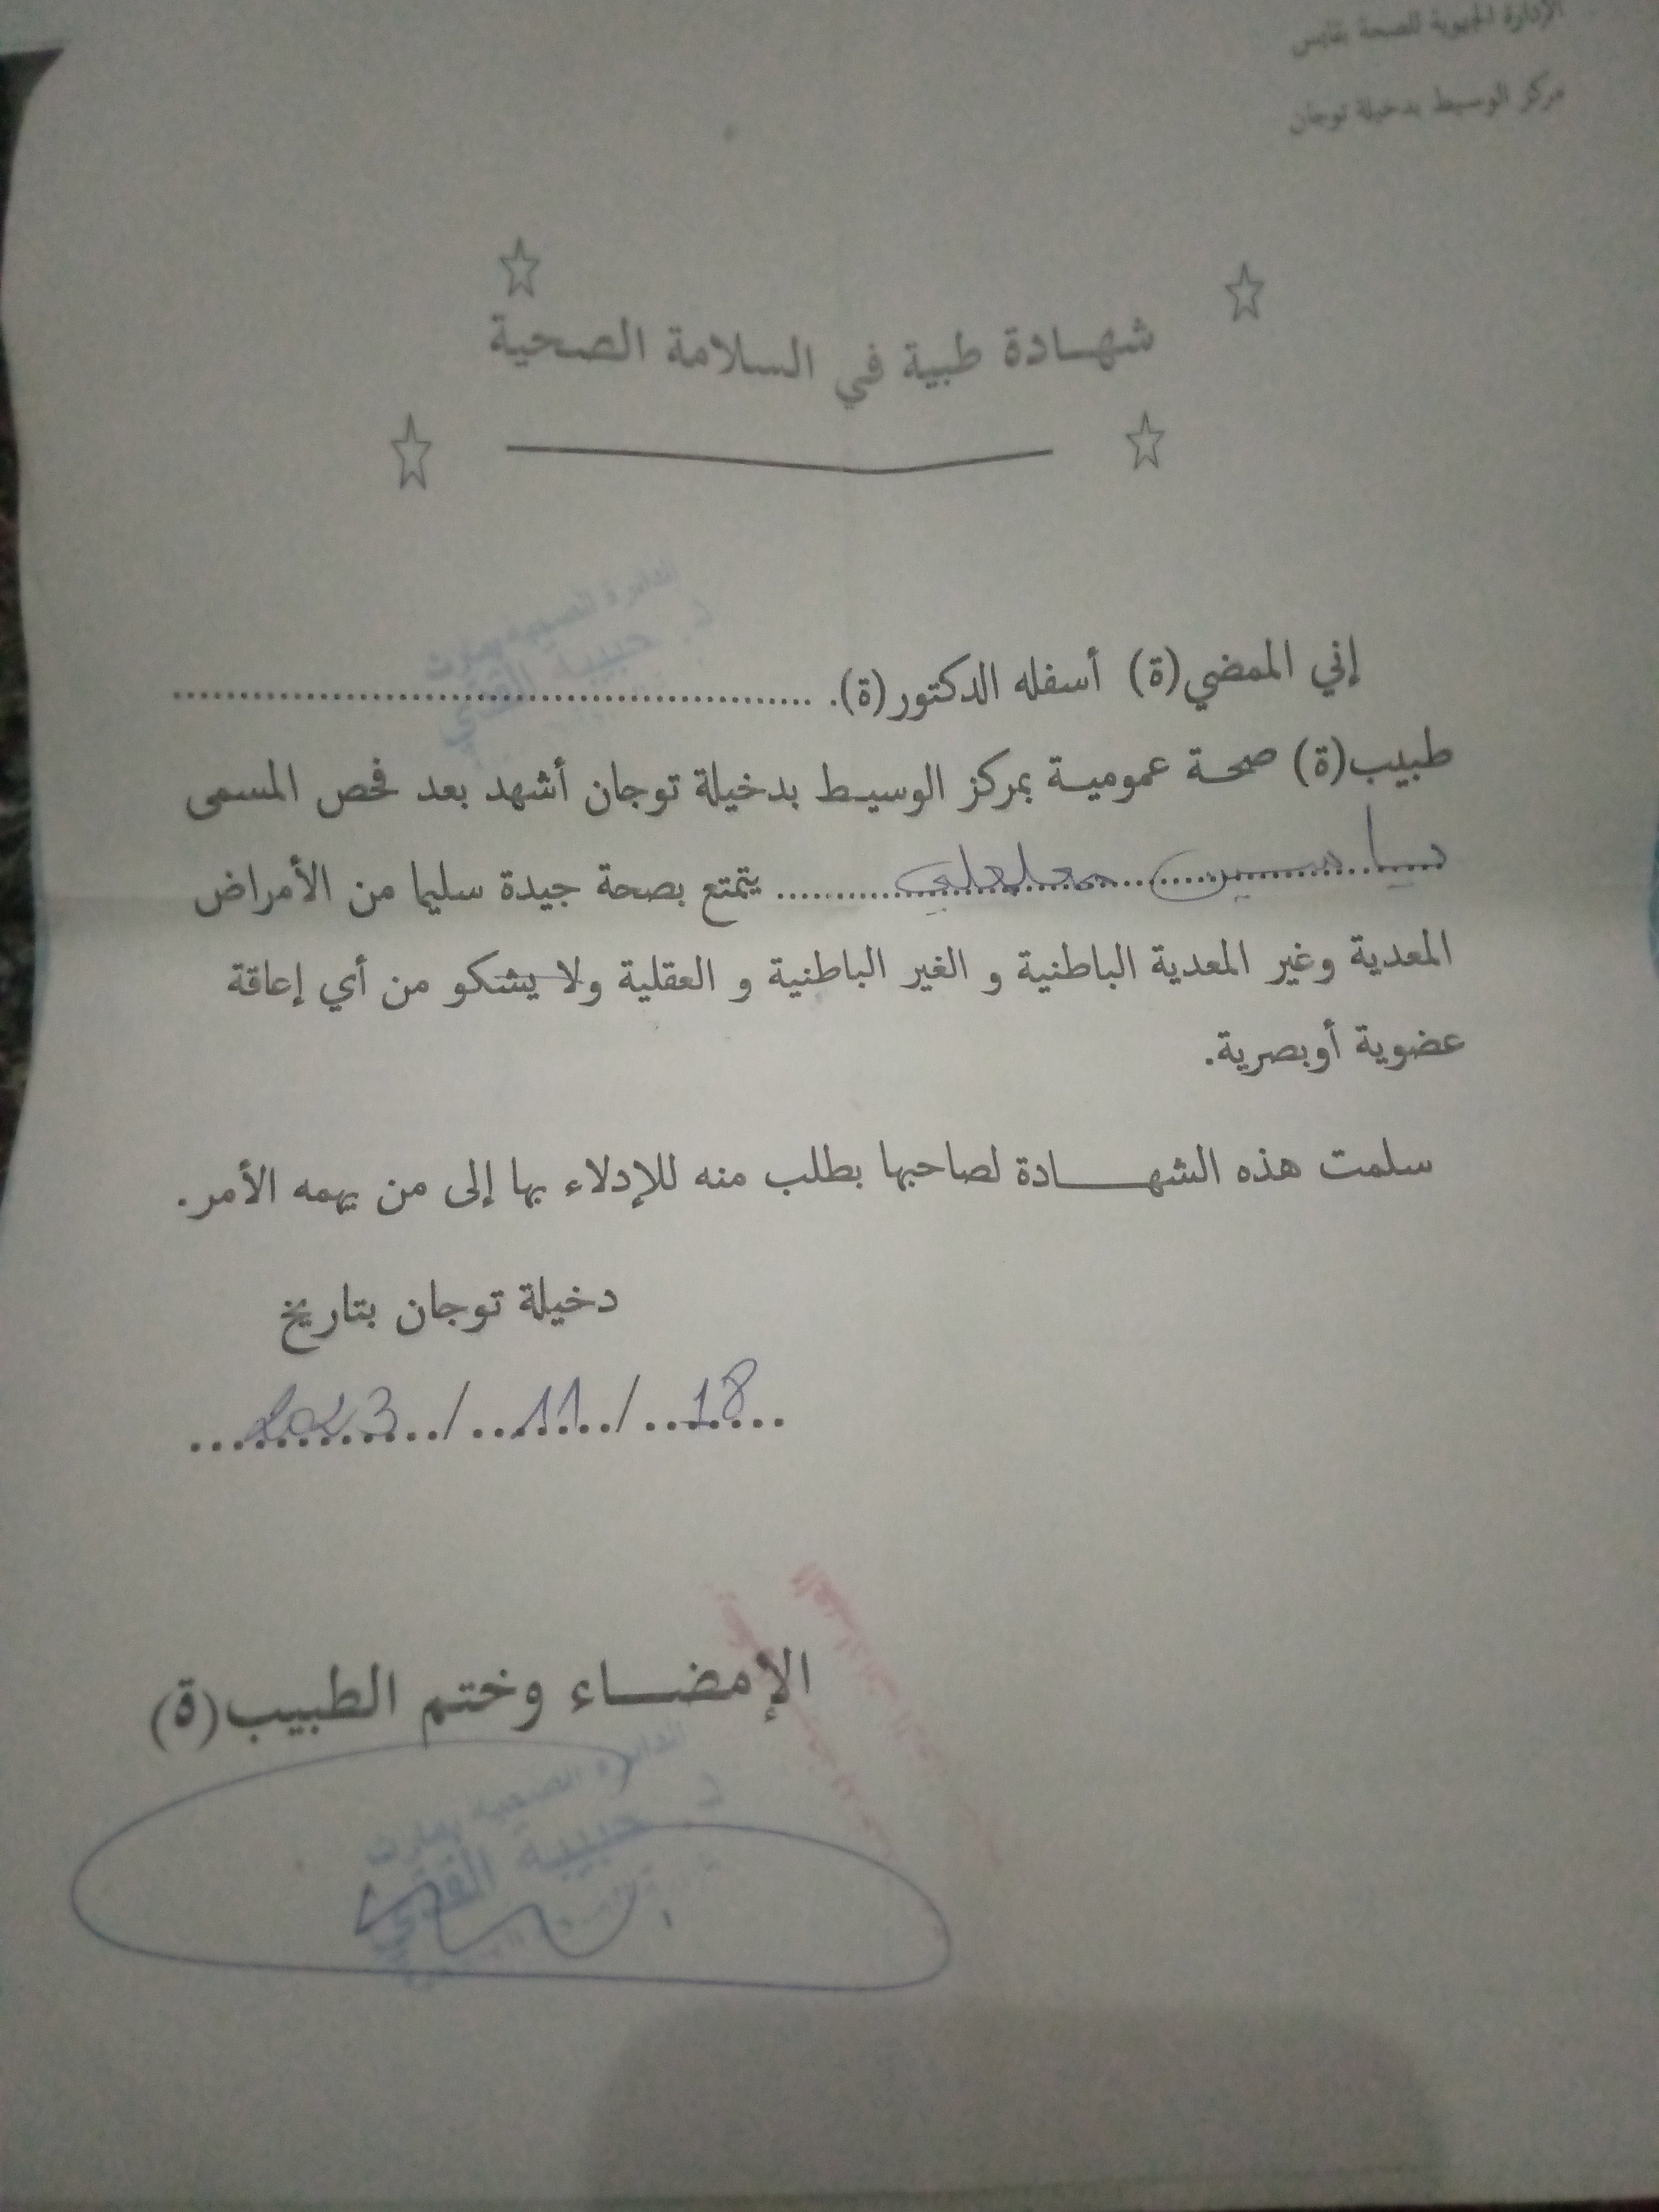 الإدارة الجهوية للصحة بقابس
مركز الوسيط بدخيلة توجان
شهـــادة طبية في السلامة الصحية
الدائرة الصحية بمارث
د. حبيبة القفي
إني الممضي(ة) أسفله الدكتور(ة). ........................................
طبيب(ة) صحة عمومية بمركز الوسيط بدخيلة توجان أشهد بعد فحص المسمى
ياسين ........ يتمتع بصحة جيدة سليما من الأمراض
المعدية وغير المعدية الباطنية و الغير الباطنية و العقلية ولا يشكو من أي إعاقة
عضوية أوبصرية.
سلمت هذه الشهـــــادة لصاحبها بطلب منه للإدلاء بها إلى من يهمه الأمر.
دخيلة توجان بتاريخ
18/11/2023
الإمضـــاء وختم الطبيب(ة)
الدائرة الصحية بمارث
د. حبيبة